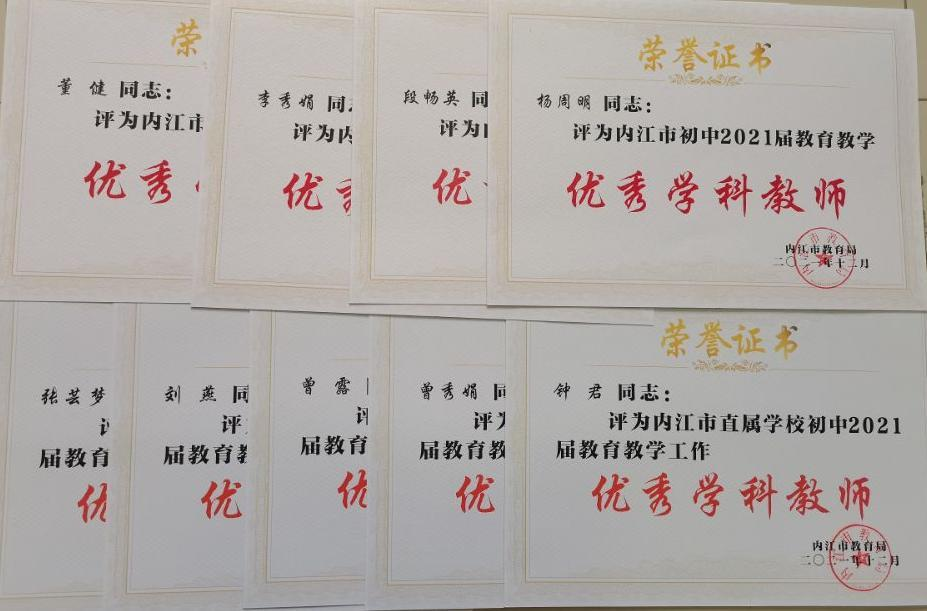 荣
董健同志：
评为内江市
优秀
李秀娟 同志
评为内
优秀
段畅英 同
评为内
优
荣誉证书
杨周明 同志：
评为内江市初中2021届教育教学
优秀学科教师
内江市教育局
二〇二一年十二月
张芸梦
评
届教育
优
刘燕 同
评
届教育教
优
曾露
评
届教育教
优
曾秀娟 同
评为
届教育教
优
荣誉证书
钟君 同志：
评为内江市直属学校初中2021
届教育教学工作
优秀学科教师
内江市教育局
二〇二一年十二月